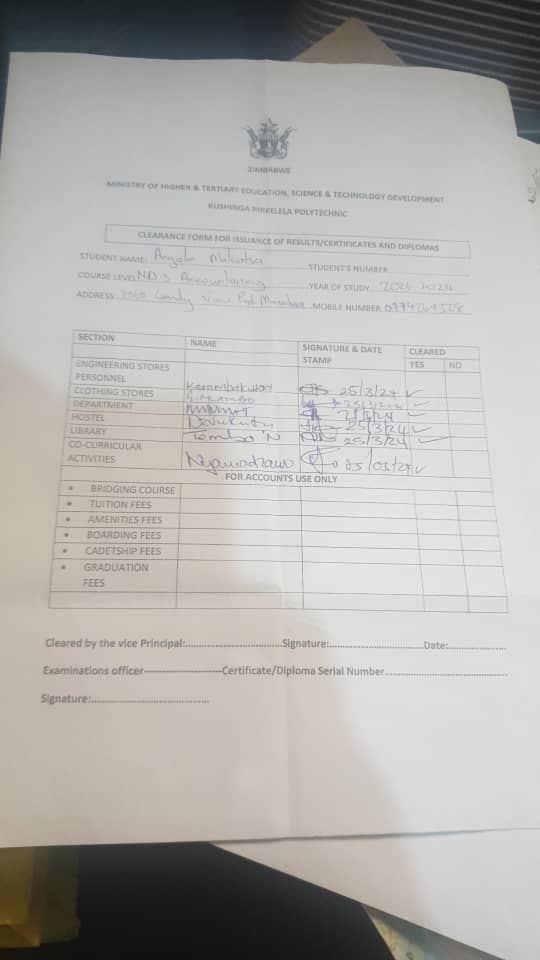 ZIMBABWE
MINISTRY OF HIGHER & TERTIARY EDUCATION, SCIENCE & TECHNOLOGY DEVELOPMENT
KUSHINGA PHIKELELA POLYTECHNIC
CLEARANCE FORM FOR ISSUANCE OF RESULTS/CERTIFICATES AND DIPLOMAS
STUDENT NAME: Angela STUDENT'S NUMBER
COURSE LEVEL ND 3 Accountancy YEAR OF STUDY 2024
ADDRESS View Park MOBILE NUMBER
SECTION NAME SIGNATURE & DATE STAMP CLEARED YES NO
ENGINEERING STORES PERSONNEL 25/3/24 ✓
CLOTHING STORES ✓
DEPARTMENT ✓
HOSTEL 25/3/24 ✓
LIBRARY Tembo N 25/3/24 ✓
CO-CURRICULAR ACTIVITIES 25/03/24 ✓
FOR ACCOUNTS USE ONLY
• BRIDGING COURSE
• TUITION FEES
• AMENITIES FEES
• BOARDING FEES
• CADETSHIP FEES
• GRADUATION FEES
Cleared by the vice Principal: Signature: Date:
Examinations officer Certificate/Diploma Serial Number
Signature: